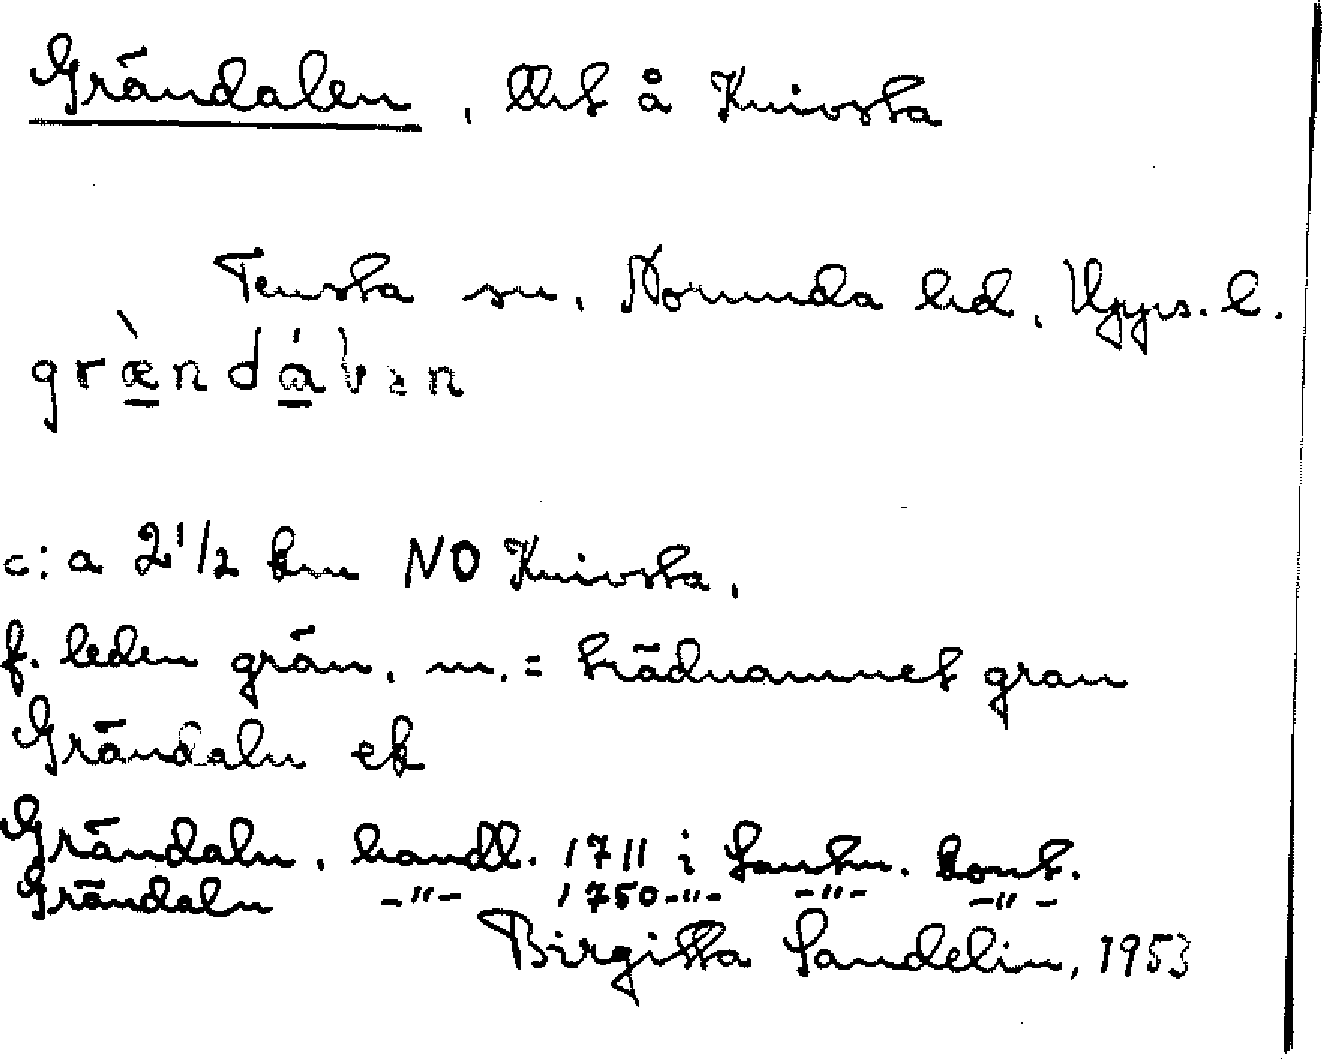 Grändalen, Utt å Knivsta
Tensta sn. Norunda hd. Upps. l.
græ̀ndálən
c:a 2 1/2 km NO Knivsta.
f. leden grän, m. = trädnamnet gran
Grändaln ek
Grändaln, handl. 1711 i Lantm. kont.
Grändaln -"- 1750 -"- -"- -"-
Birgitta Sandelin, 1953